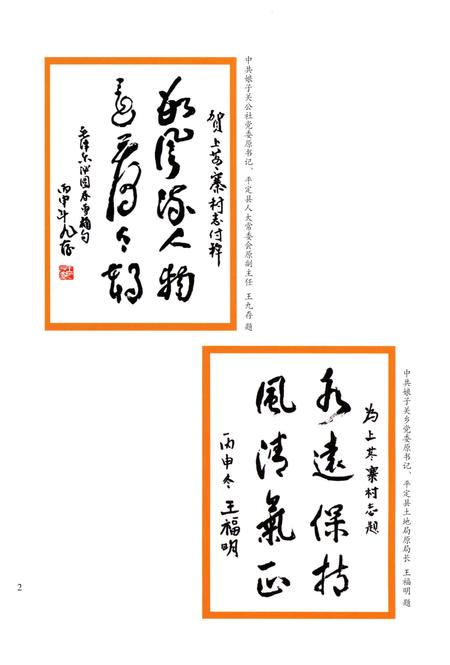 中共娘子关公社党委原书记、平定县人大常委会原副主任 王九存 题
贺上董寨村志付梓
数风流人物
还看今朝
毛泽东沁园春雪摘句
丙申年 九存
中共娘子关乡党委原书记、平定县土地局原局长 王福明 题
为上董寨村志题
永远保持
风清气正
丙申冬 王福明
2